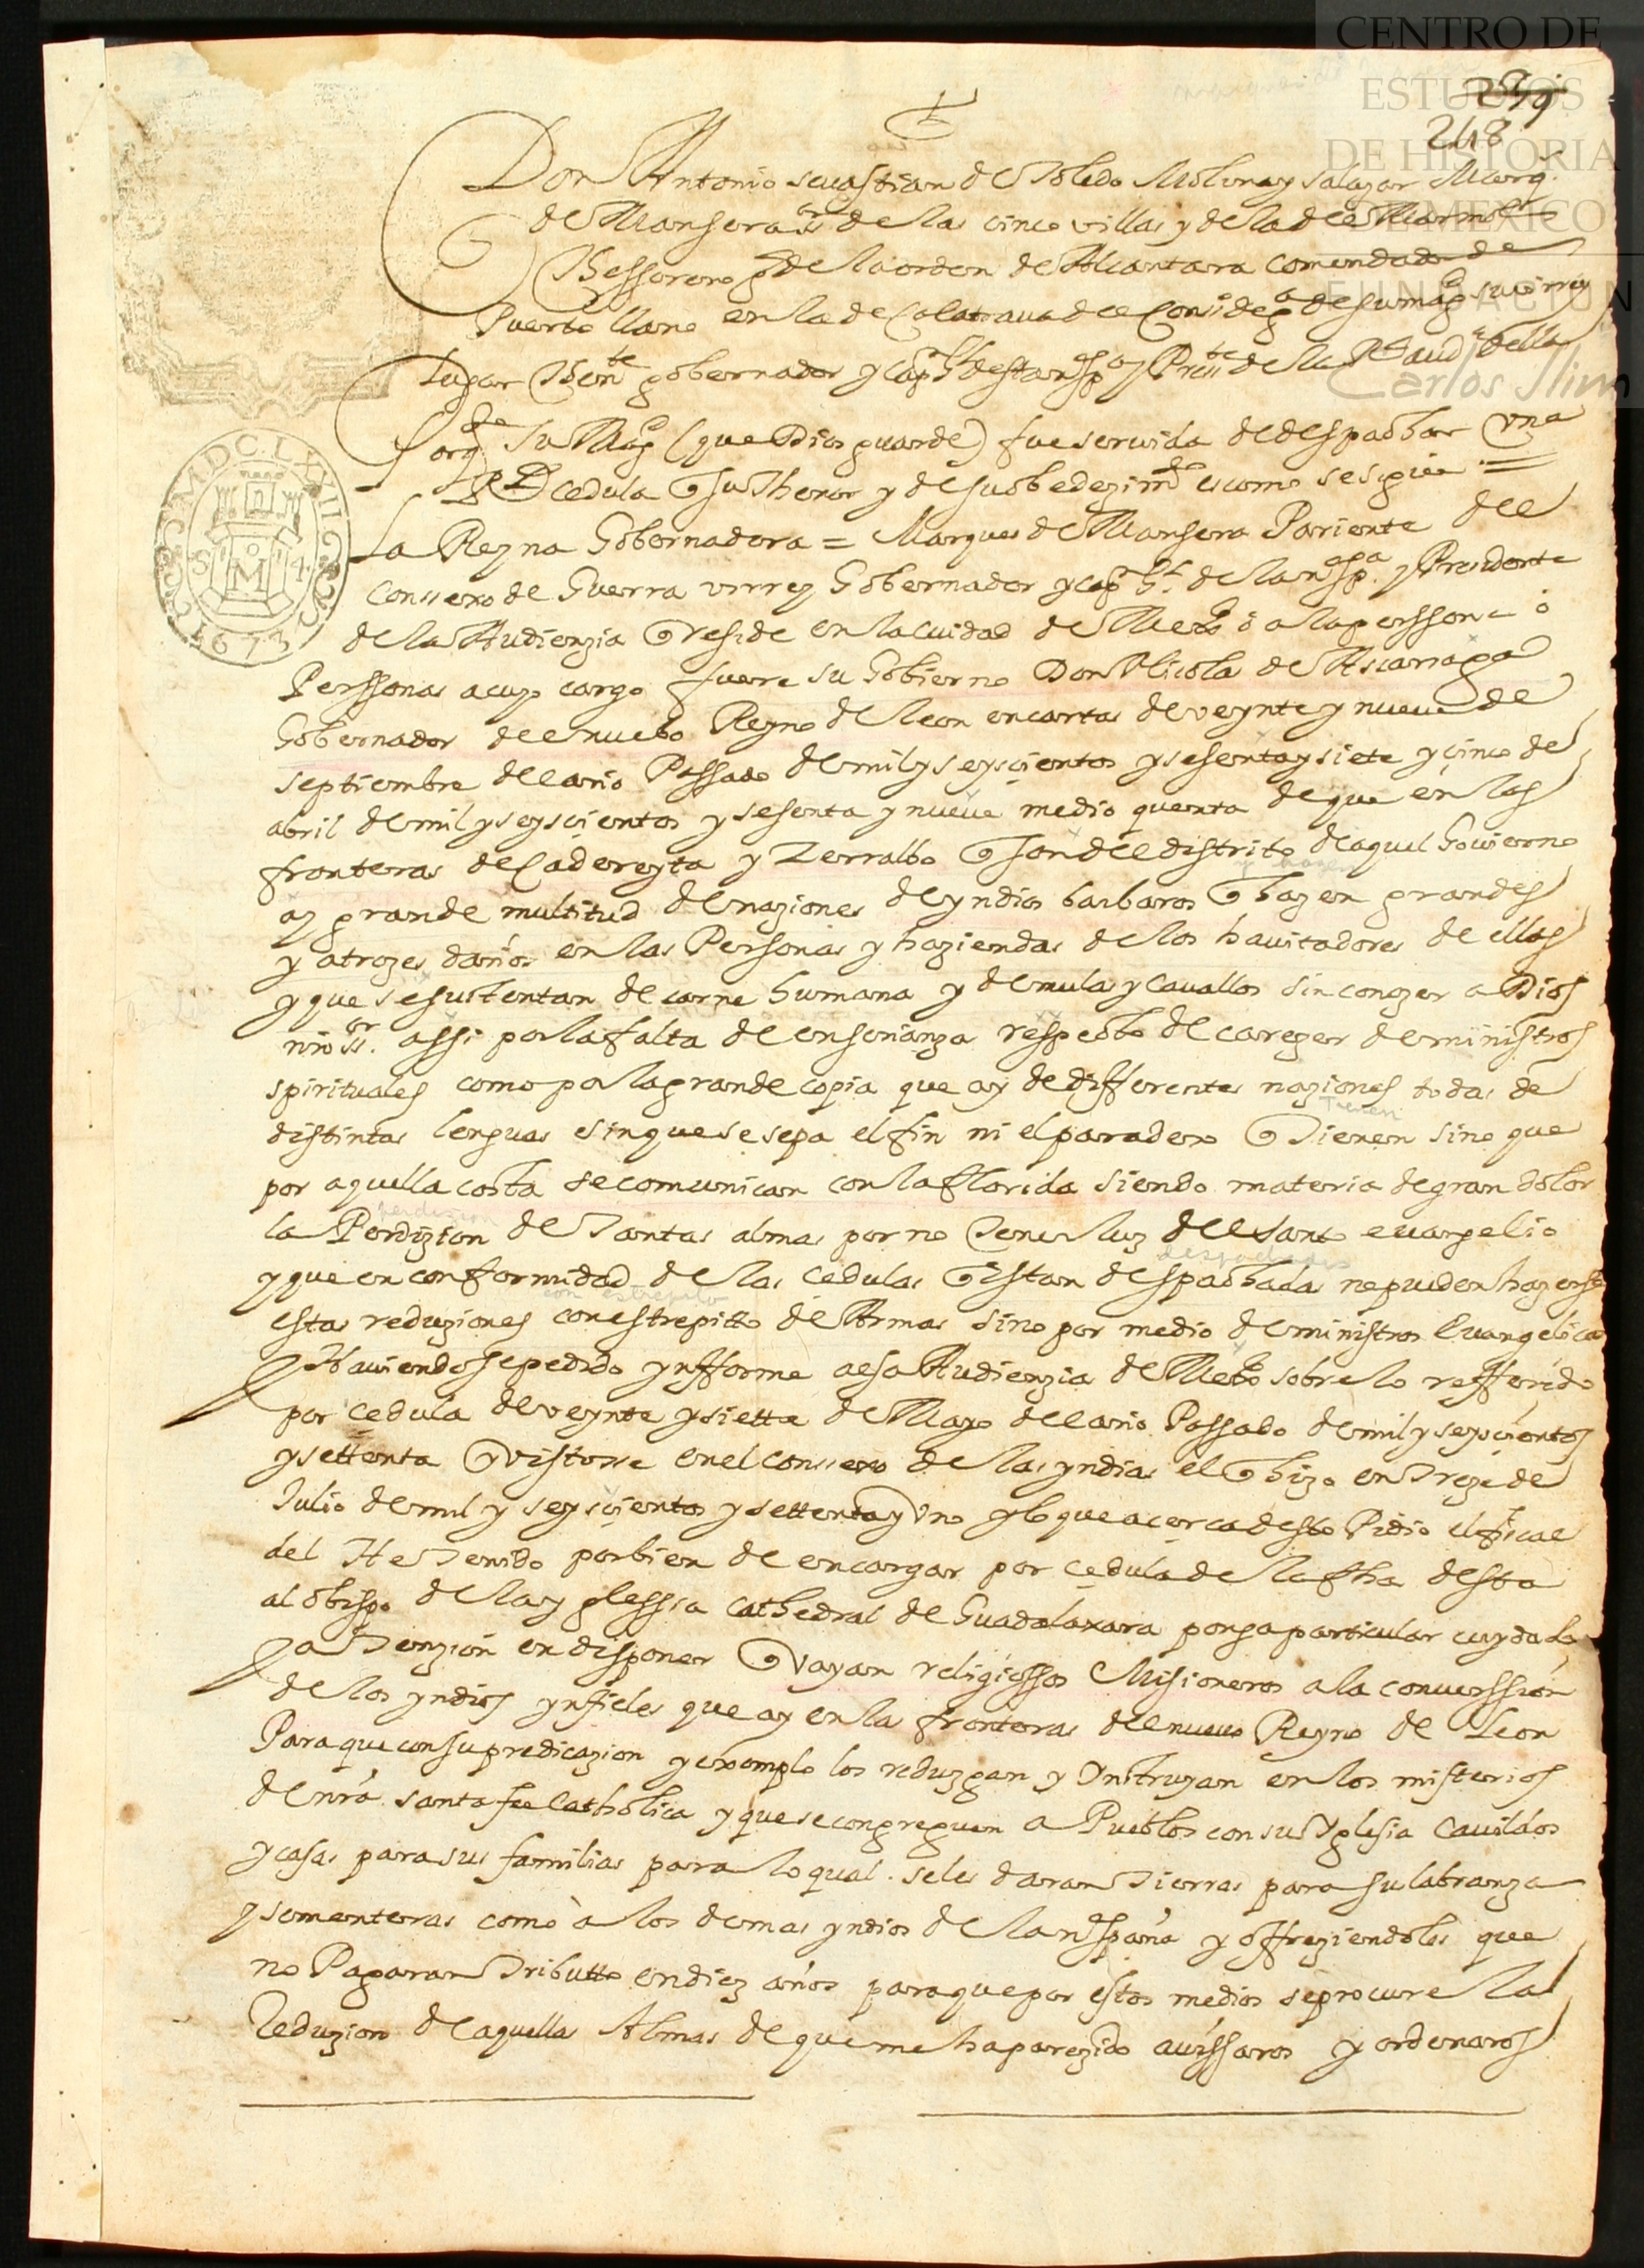 CENTRO DE
ESTUDIOS
DE HISTORIA
DE MEXICO
FUNDACION
Carlos Slim
248
Don Antonio sevastian de Toledo Molina y Salazar Marq.s
de Mansera s.or de las cinco villas y de la del Marmol
Thessorero p.o de la orden de Alcantara comendador de
Puerto llano en la de Calatrava del Conss.o de g.a de su mag.d su virrey
lugar Then.te gobernador y cap.n G.l desta nu.a esp.a y Press.te de la R.l aud.a della
Porq.e Su Mag.d (que Dios guarde) fue servida de despachar una
R.l cedula q su thenor y de su obedezim.to es como se sigue =
La Reyna Gobernadora = Marques de Mansera Pariente del
Conssexo de Guerra virrey Gobernador y cap.n G.l de la nu.a esp.a y Presidente
de la Audienzia q reside en la cuidad de Mex.co o a la perssona o
Perssonas a cuyo cargo fuere su Gobierno Don Nicolas de Ascarraga
Gobernador del nuebo Reyno de Leon en cartas de veynte y nueve de
septiembre del año Passado de mil y seyscientos y sesenta y siete y cinco de
abril de mil y seyscientos y sesenta y nueve me dio quenta de que en las
fronteras de Cadereyta y Zerralbo q son del distrito de aquel Govierno
ay grande multitud de naziones de yndios barbaros q hazen grandes
y atrozes daños en las Personas y haziendas de los havitadores de ellas
y que se sustentan de carne humana y de mulas y cavallos sin conozer a Dios
nro s.or assi por la falta de enseñanza respecto de carezer de ministros
spirituales como por la grande copia que ay de differentes naziones todas de
distintas lenguas e sin que se sepa el fin ni el paradero q Tienen sino que
por aquella costa se comunican con la florida siendo materia de gran dolor
la Perdizion de Tantas almas por no Tener luz del santo evangelio
y que en conformidad de las cedulas q estan despachadas no pueden hazerse
estas reduziones con estrepitto de Armas sino por medio de ministros Evangelicos
Y haviendosse pedido ynfforme a esa Audienzia de Mex.co sobre lo refferido
por cedula de veynte y siette de Mayo del año Passado de mil y seyscientos
y settenta y vistosse en el conssexo de las yndias el q hizo en Treze de
Julio de mil y seyscientos y settenta y Uno y lo que acerca desto Pidio el fiscal
del He Tenido por bien de encargar por cedula de la fha desta
al obispo de la yglessia cathedral de Guadalaxara ponga particular cuydado
y aTenzion en disponer q vayan religiossos Misioneros a la converssion
de los yndios ynfieles que ay en las fronteras del nuevo Reyno de Leon
Para que con su predicazion y exemplo los reduzgan y Ynstruyan en los misterios
de nra santa fee Catholica y que se congreguen a Pueblos con su Yglesia Cavildos
y casas para sus familias para lo qual se les daran Tierras para su labranza
y sementeras como a los demas yndios de la nu.a españa y offreziendoles que
no Pagaran Tributto en diez años para que por estos medios se procure la
Reduzion de aquellas Almas de que me ha parezido avissaros y ordenaros